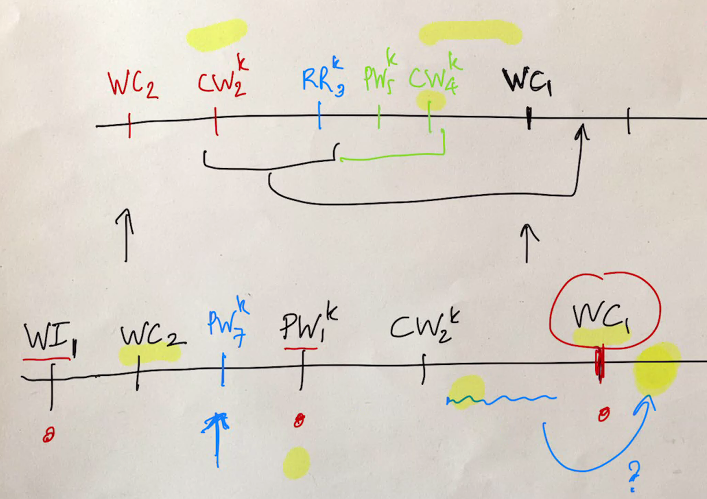 WC₂ CW₂ᵏ RR₃ᵏ PW₅ᵏ CW₄ᵏ WC₁
WI₁ WC₂ PW₇ᵏ PW₁ᵏ CW₂ᵏ WC₁
?